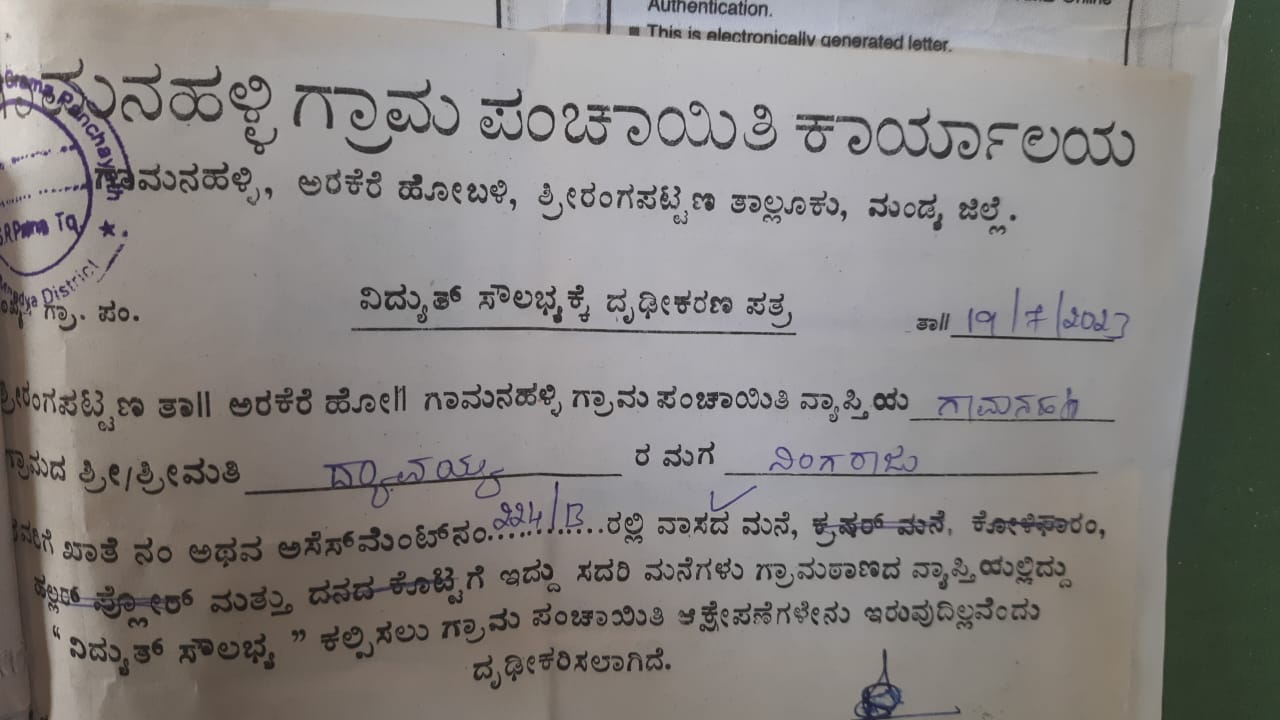 Authentication.
This is electronically generated letter.
ಗಾಮನಹಳ್ಳಿ ಗ್ರಾಮ ಪಂಚಾಯಿತಿ ಕಾರ್ಯಾಲಯ
ಗಾಮನಹಳ್ಳಿ, ಅರಕೆರೆ ಹೋಬಳಿ, ಶ್ರೀರಂಗಪಟ್ಟಣ ತಾಲ್ಲೂಕು, ಮಂಡ್ಯ ಜಿಲ್ಲೆ.
Grama Panchayath
S.R.Patna Tq.
Mandya District
ಗ್ರಾ. ಪಂ.
ವಿದ್ಯುತ್ ಸೌಲಭ್ಯಕ್ಕೆ ದೃಢೀಕರಣ ಪತ್ರ
ತಾ|| 19/7/2023
ಶ್ರೀರಂಗಪಟ್ಟಣ ತಾ|| ಅರಕೆರೆ ಹೋ|| ಗಾಮನಹಳ್ಳಿ ಗ್ರಾಮ ಪಂಚಾಯಿತಿ ವ್ಯಾಪ್ತಿಯ ಗಾಮನಹಳ್ಳಿ
ಗ್ರಾಮದ ಶ್ರೀ/ಶ್ರೀಮತಿ ದ್ಯಾವಯ್ಯ ರ ಮಗ ನಿಂಗರಾಜು
ರವರಿಗೆ ಖಾತೆ ನಂ ಅಥವ ಅಸೆಸ್‌ಮೆಂಟ್‌ನಂ. 224/B ರಲ್ಲಿ ವಾಸದ ಮನೆ, ಕ್ರಷರ್ ಮನೆ, ಕೋಳಿಫಾರಂ,
ಹಲ್ಲರ್ ಪ್ಲೋರ್ ಮತ್ತು ದನದ ಕೊಟ್ಟಗೆ ಇದ್ದು ಸದರಿ ಮನೆಗಳು ಗ್ರಾಮಠಾಣದ ವ್ಯಾಪ್ತಿಯಲ್ಲಿದ್ದು
“ವಿದ್ಯುತ್ ಸೌಲಭ್ಯ” ಕಲ್ಪಿಸಲು ಗ್ರಾಮ ಪಂಚಾಯಿತಿ ಆಕ್ಷೇಪಣೆಗಳೇನು ಇರುವುದಿಲ್ಲವೆಂದು
ದೃಢೀಕರಿಸಲಾಗಿದೆ.